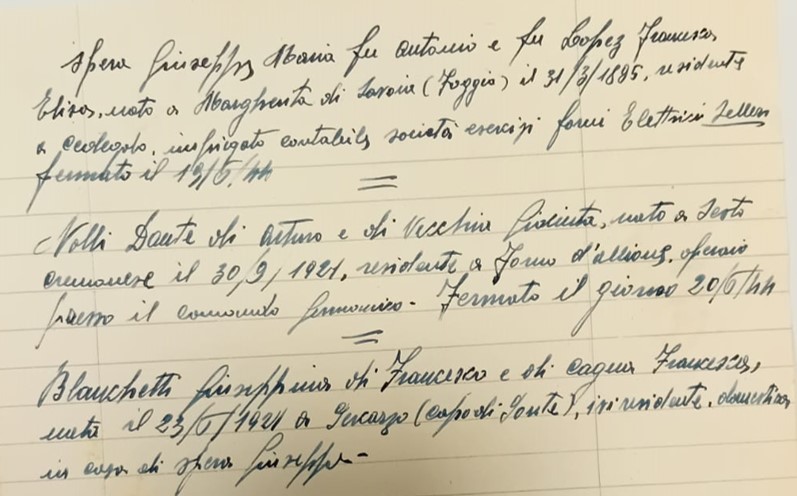 Spera Giuseppe Maria fu Antonio e fu Lopez Francesca
Elisa, nato a Margherita di Savoia (Foggia) il 31/3/1885, residente
a Cedegolo, impiegato contabile società esercizi forni Elettrici
fermato il 19/6/44
=
Nolli Dante di Arturo e di Vecchia Giacinta, nato a Sesto
cremonese il 30/9/1921, residente a Forno d'allione, operaio
presso il comando Germanico - Fermato il giorno 20/6/44
=
Blanchetti Giuseppina di Francesco e di Cagna Francesca,
nata il 23/6/1921 a (Capo di Ponte), ivi residente, domestica
in casa di Spera Giuseppe -